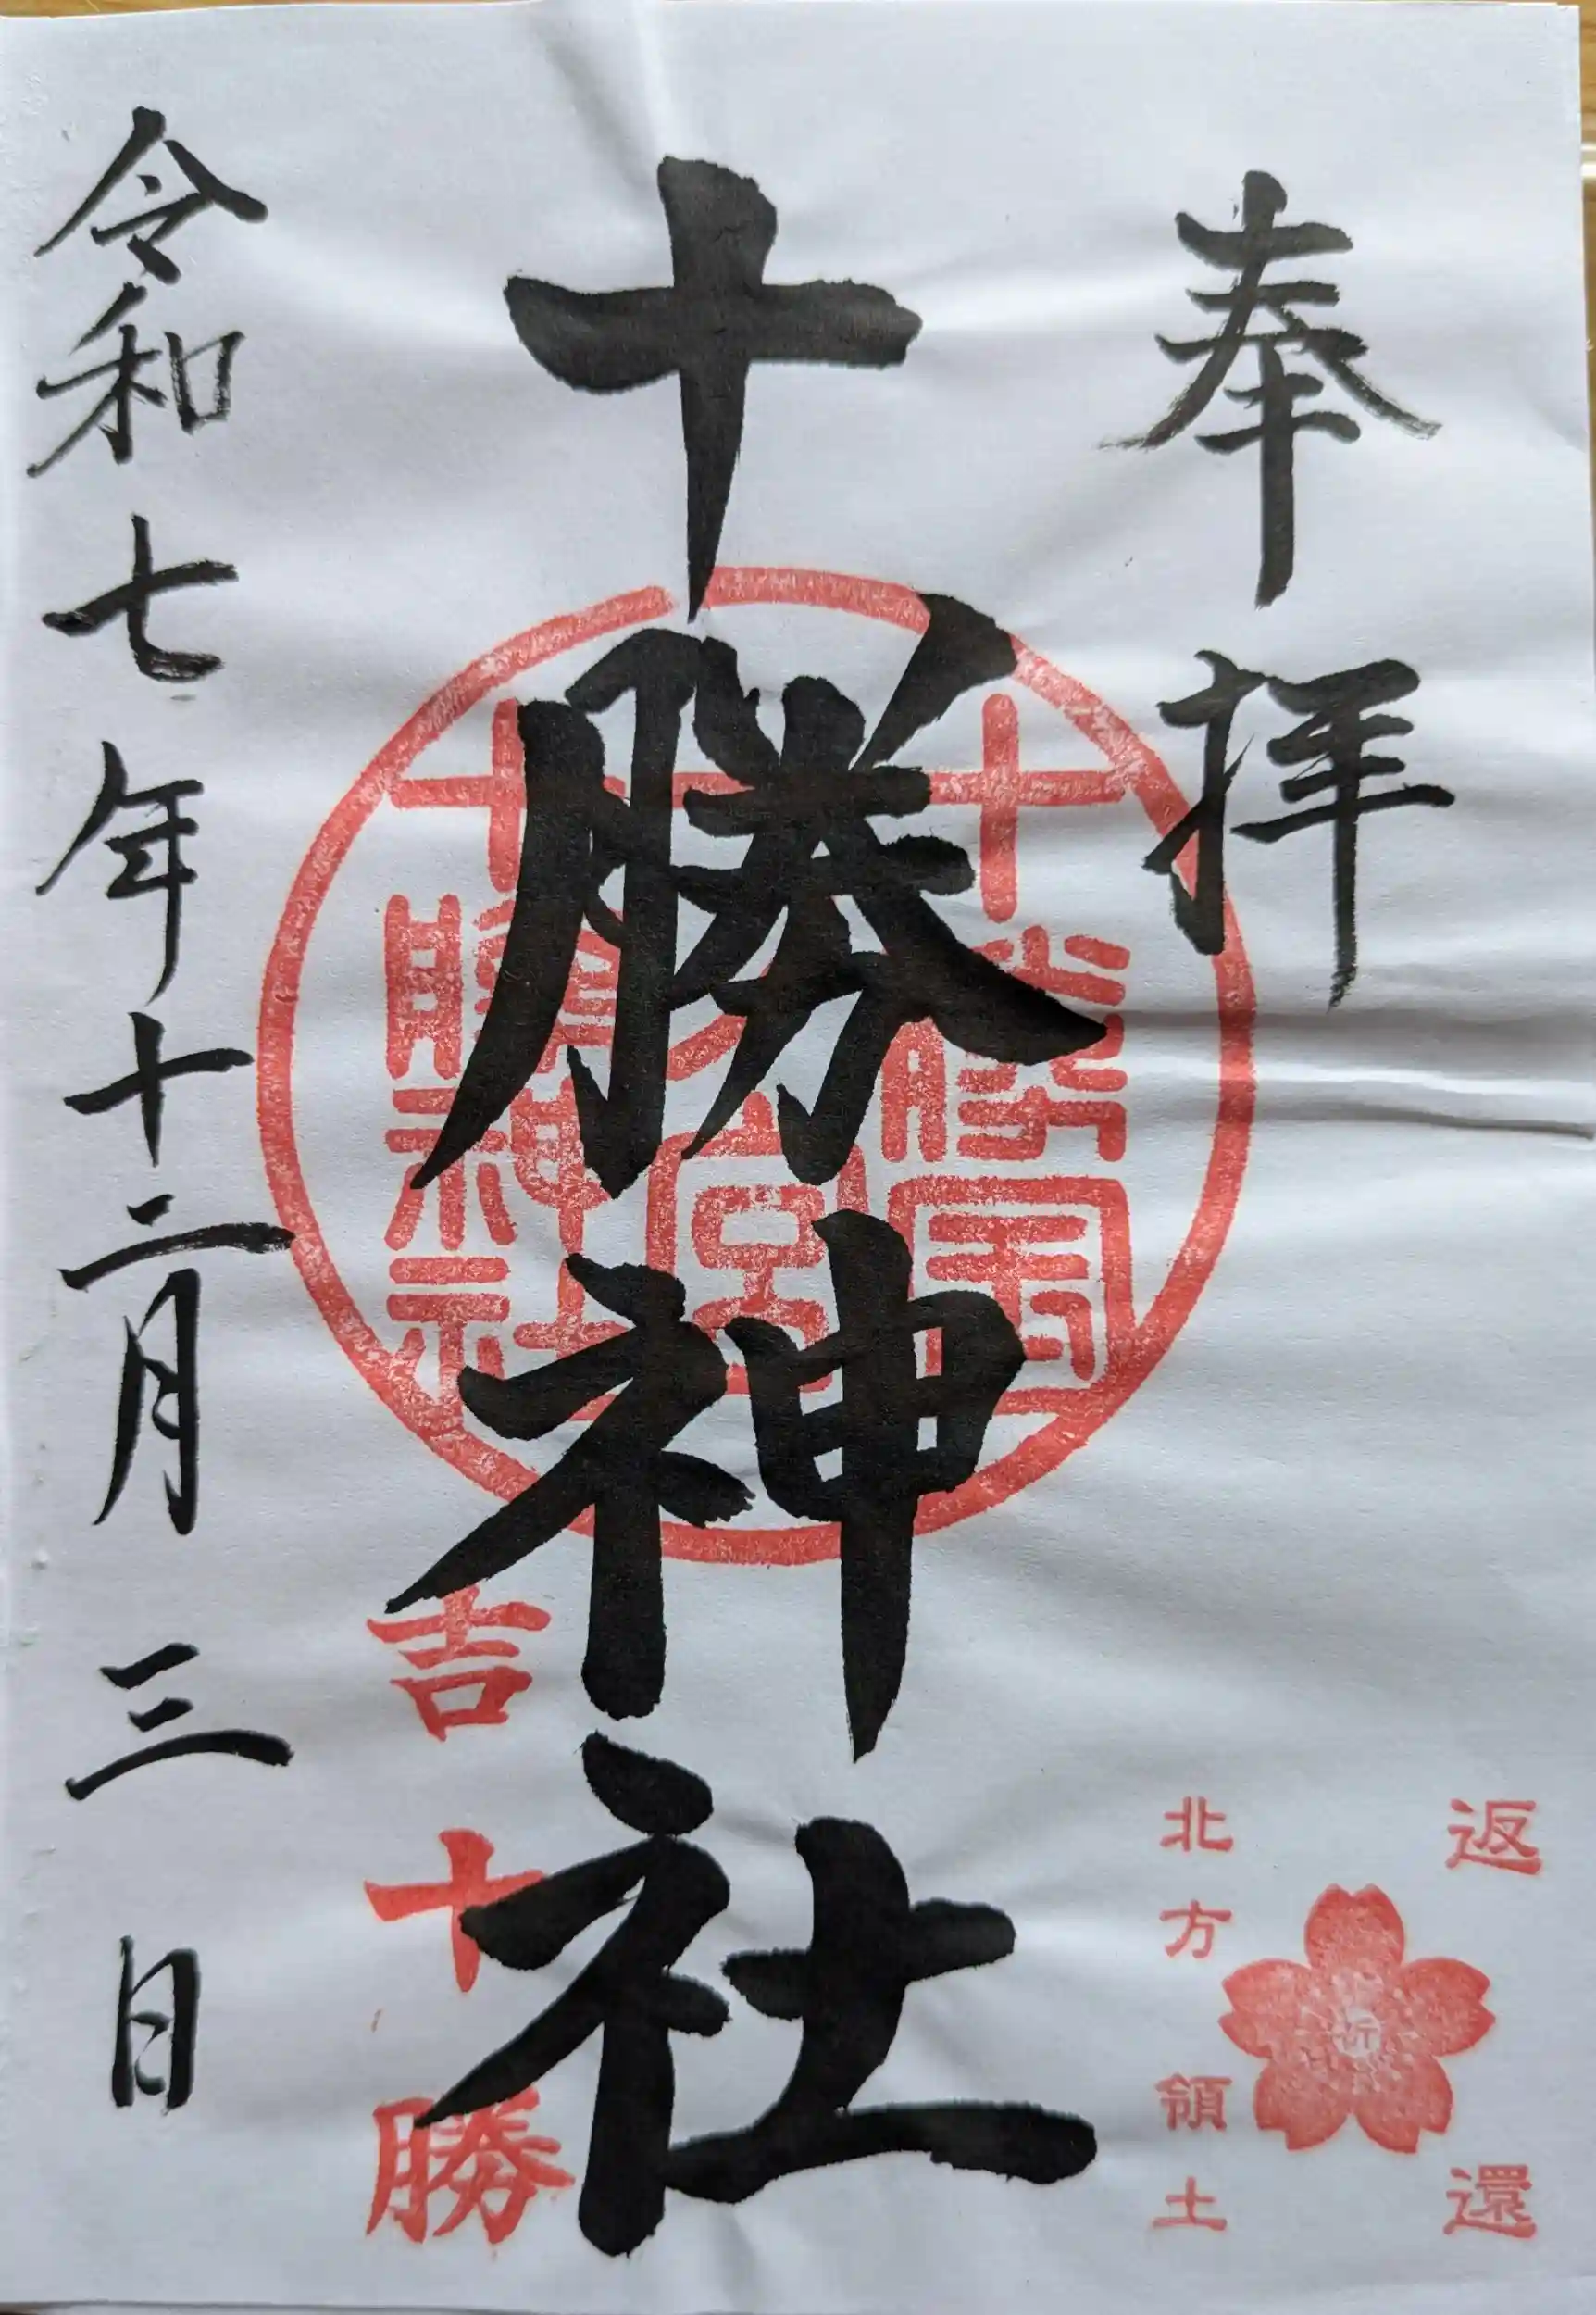 奉拝
返還
祈
北方領土
十勝神社
十勝国
宮
十勝神社
吉十勝
令和七年十二月三日